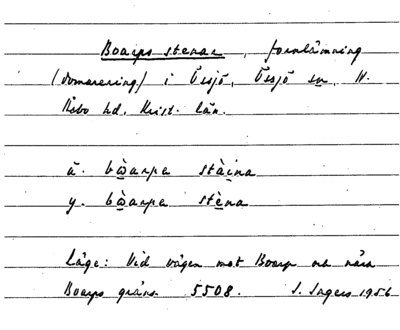 Boarps stenar, fornlämning
(domarering) i Össjö, Össjö sn, N.
Åsbo hd. Krist. län.
ä. bẁarpa stàina
y. bẁarpa stèna
Läge: Vid vägen mot Boarp och nära
Boarps gräns. 5508. S. Ingers 1956